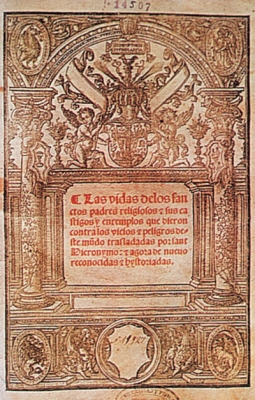 14507
Las vidas delos san
ctos padres religiosos ⁊ sus ca
stigos y exemplos que dieron
contra los vicios ⁊ peligros de
ste mũdo trasladadas por sant
Hieronymo: ⁊ agora de nueuo
reconocidas ⁊ hystoriadas.